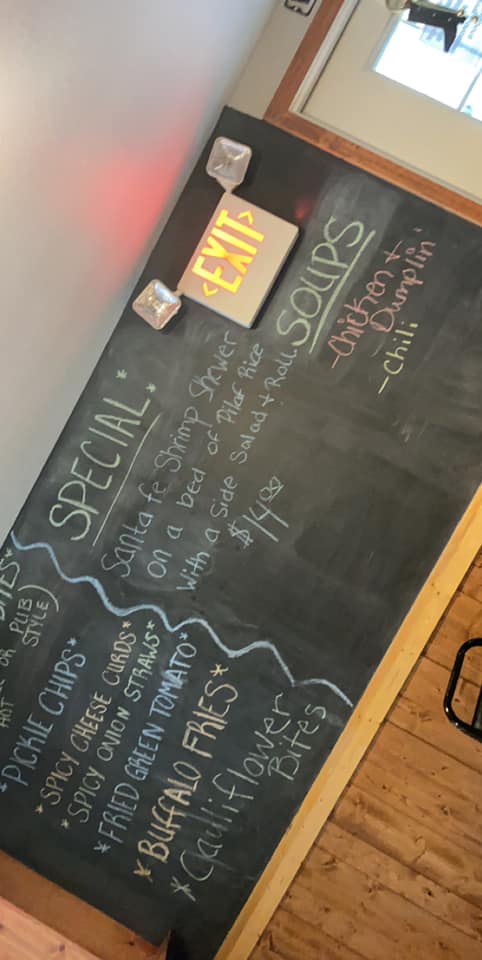 <EXIT>
*SPECIAL:*
Santa fe Shrimp Skewer
on a bed of Pilaf Rice
with a side Salad + Roll
$14.00
SOUPS
-Chicken +
Dumplin'
-Chili
BITES*
HOT OR PUB
STYLE)
*PICKLE CHIPS*
*SPICY CHEESE CURDS*
*SPICY ONION STRAWS*
*FRIED GREEN TOMATO*
*BUFFALO FRIES*
*Cauliflower
Bites